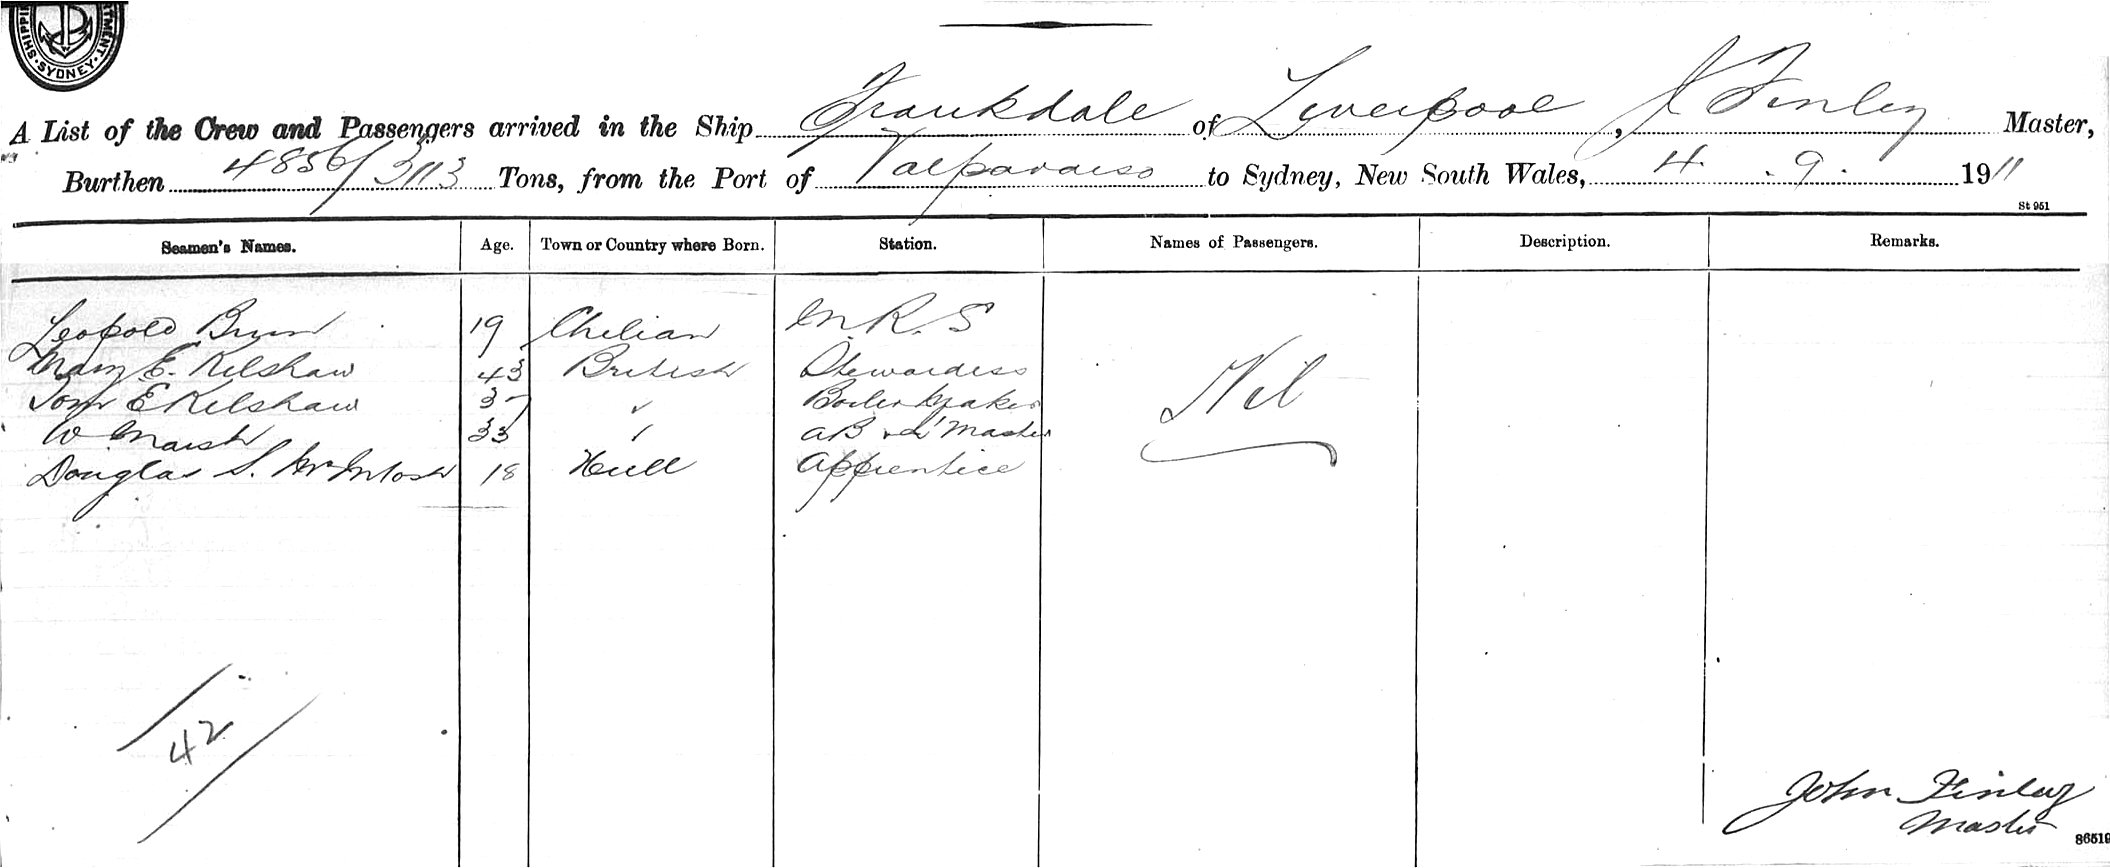 SHIPPI · SYDNEY · RTMENT
A List of the Crew and Passengers arrived in the Ship Frankdale of Liverpool, J Finlay Master,
Burthen 4856/3113 Tons, from the Port of Valparaiso to Sydney, New South Wales, 4. 9. 1911
St 951
Seamen's Names. Age. Town or Country where Born. Station. Names of Passengers. Description. Remarks.
Leopold 19 Chilian M.R.S
Mary E. Kelshaw 43 British Stewardess
E Kelshaw 37 " Boiler Maker
W Marsh 33 " AB Master
Douglas S. McIntosh 18 Hull Apprentice
Nil
42
John Finlay
Master
86519